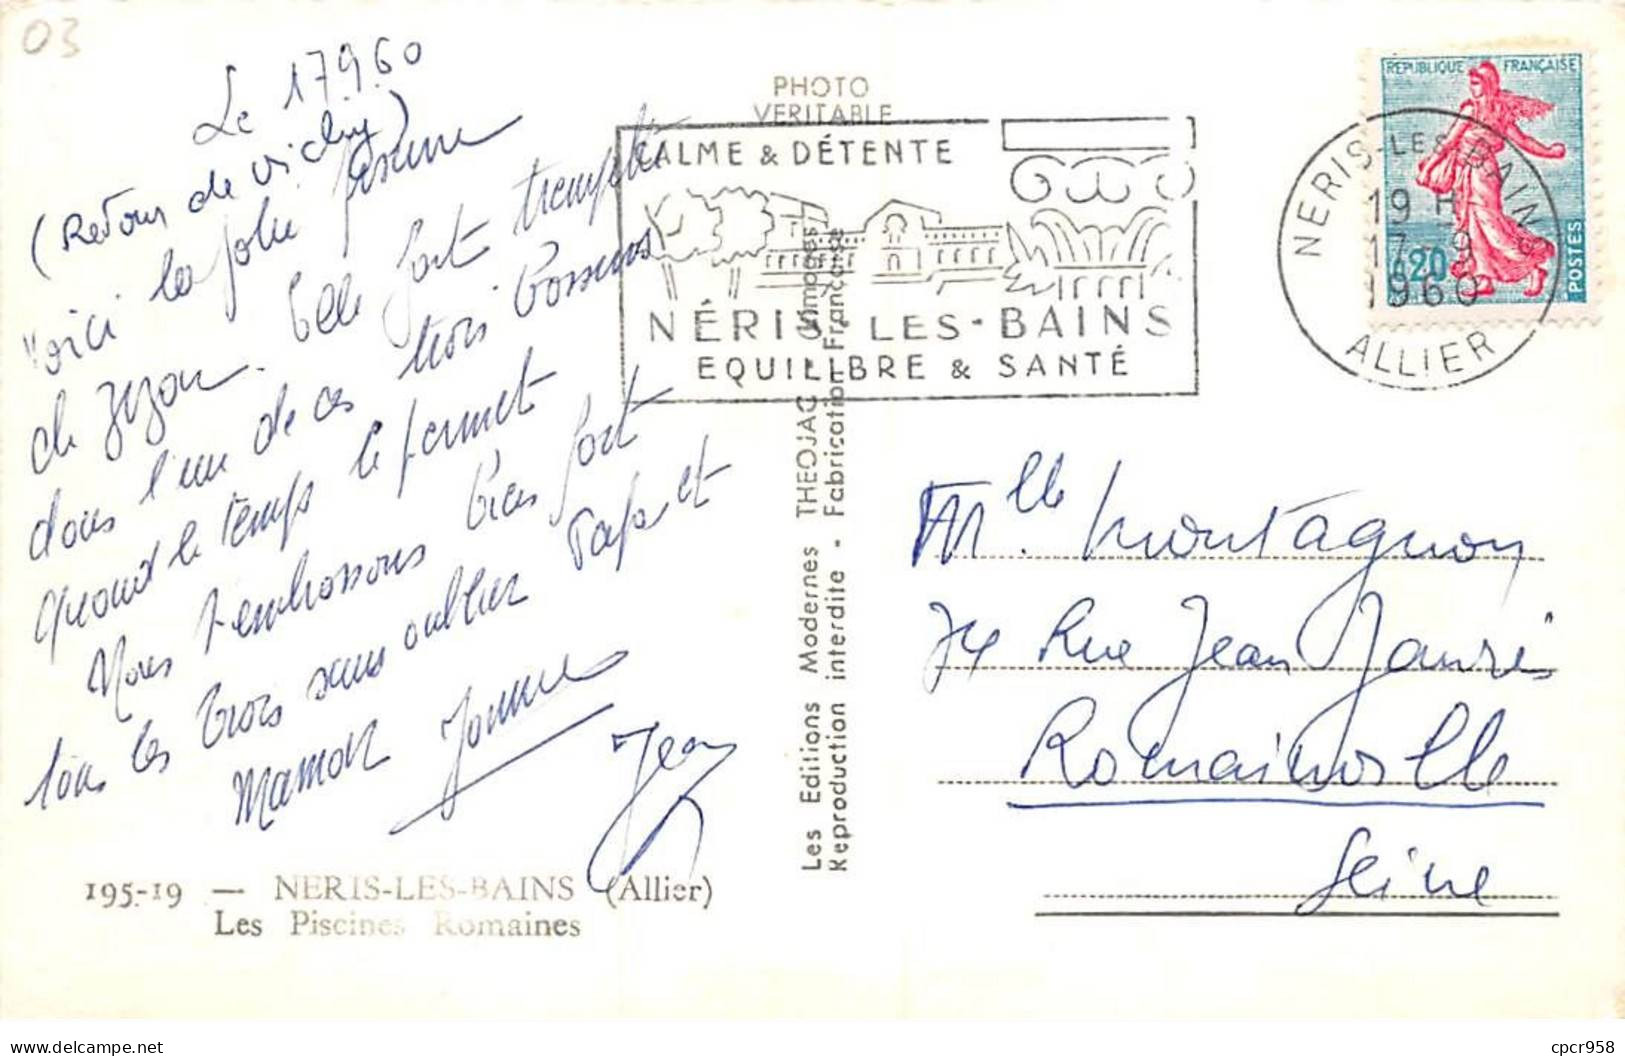 03
Le 17.9.60
(Retour de Vichy)
Voici la jolie piscine
de Elle fait trempette
dans l'un de ces trois bassins
quand le temps le permet
Nous t'embrassons bien fort
tous les trois sans oublier Papa et
Maman
Jean
195-19 — NERIS-LES-BAINS (Allier)
Les Piscines Romaines
PHOTO
VERITABLE
Les Editions Modernes THEOJAC Limoges
Reproduction interdite - Fabrication Française
CALME & DÉTENTE
NÉRIS-LES-BAINS
EQUILIBRE & SANTÉ
NERIS-LES-BAINS
19 H
17-9
1960
ALLIER
REPUBLIQUE FRANÇAISE
0,20
POSTES
Mlle Montagnon
74 Rue Jean Jaurès
Romainville
Seine
delcampe.net
cpcr958